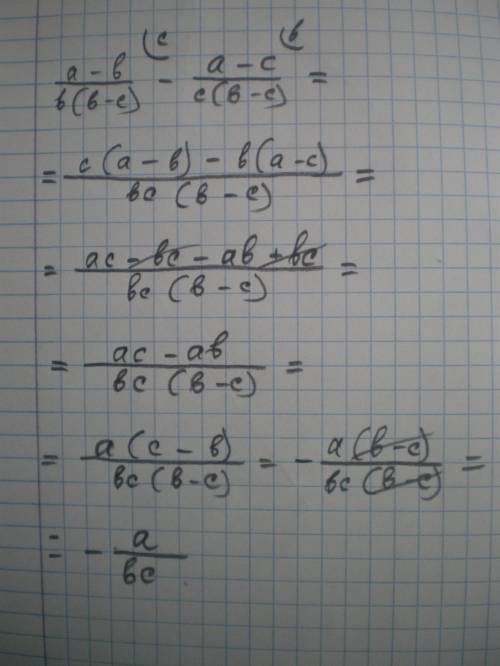 (a - b)/(b(b-c)) ⁽ᶜ - (a - c)/(c(b-c)) ⁽ᵇ =
= (c(a - b) - b(a - c))/(bc (b - c)) =
= (ac - bc - ab + bc)/(bc (b - c)) =
= (ac - ab)/(bc (b - c)) =
= (a(c - b))/(bc(b - c)) = - (a(b - c))/(bc(b - c)) =
= - a/(bc)